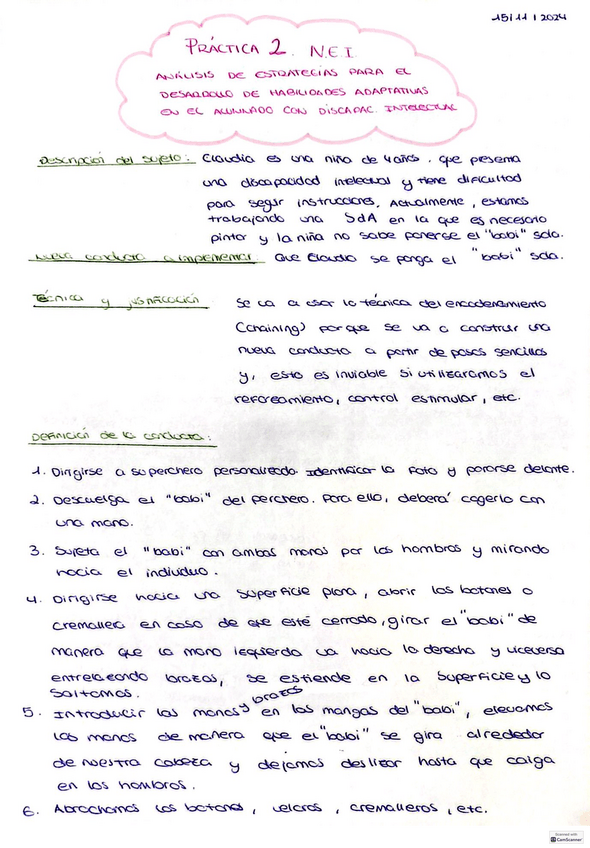 15/11/2024
PRÁCTICA 2. N.E.I.
ANÁLISIS DE ESTRATEGIAS PARA EL
DESARROLLO DE HABILIDADES ADAPTATIVAS
EN EL ALUMNADO CON DISCAPAC. INTELECTUAL
Descripción del sujeto: Claudia es una niña de 4 años. que presenta
una discapacidad intelectual y tiene dificultad
para seguir instrucciones. Actualmente, estamos
trabajando una SdA en la que es necesario
pintar y la niña no sabe ponerse el "babi" sola.
Nueva conducta a implementar: Que Claudia se ponga el "babi" sola.
Técnica y justificación: Se va a usar la técnica del encadenamiento
(chaining) porque se va a construir una
nueva conducta a partir de pasos sencillos
y, esto es inviable si utilizaramos el
reforzamiento, control estimular, etc.
DEFINICIÓN de la conducta:
1. Dirigirse a su perchero personalizado. Identificar la foto y pararse delante.
2. Descuelga el "babi" del perchero. Para ello, deberá cogerlo con
una mano.
3. Sujeta el "babi" con ambas manos por los hombros y mirando
hacia el individuo.
4. Dirigirse hacia una superficie plana, abrir los botones o
cremallera en caso de que esté cerrado, girar el "babi" de
manera que la mano izquierda va hacia la derecha y viceversa
entrelazando brazos, se estiende en la superficie y lo
soltamos.
5. Introducir las manos y brazos en las mangas del "babi", elevamos
las manos de manera que el "babi" se gira alrededor
de nuestra cabeza y dejamos deslizar hasta que caiga
en los hombros.
6. Abrochamos los botones, velcros, cremalleras, etc.
Scanned with
CamScanner